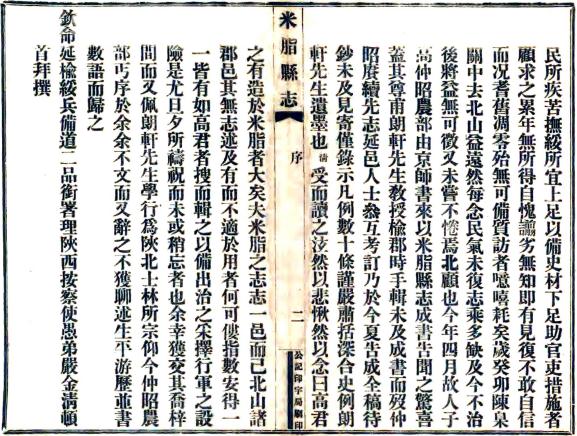 民所疾苦撫綏所宜上足以備史材下足助官吏措施者
顧求之累年無所得自愧譾劣無知即有見復不敢自信
而况耆舊凋零殆無可備質訪者噫嘻耗矣歲癸卯陳臬
關中去北山益遠然每念民氣未復志乘多缺及今不治
後將益無可徵又未嘗不惓焉北顧也今年四月故人子
高仲昭農部由京師書來以米脂縣志成書告聞之驚喜
蓋其尊甫朗軒先生教授榆郡時手輯未及成書而歿仲
昭賡續先志延邑人士叅互考訂乃於今夏告成全稿待
鈔未及見寄僅錄示凡例數十條謹嚴肅括深合史例朗
軒先生遺墨也清受而讀之泫然以悲愀然以念曰高君
米脂縣志
序
二
公記印字局刷印
之有造於米脂者大矣夫米脂之志志一邑而已北山諸
郡邑其無志述及有而不適於用者何可僂指數安得一
一皆有如高君者搜而輯之以備出治之采擇行軍之設
險是尤旦夕所禱祝而未或稍忘者也余幸獲交其喬梓
間而又佩朗軒先生學行為陜北士林所宗仰今仲昭農
部丐序於余余不文而又辭之不獲聊述生平游歷並書
數語而歸之
欽命延榆綏兵備道二品銜署理陜西按察使愚弟嚴金清頓
首拜撰